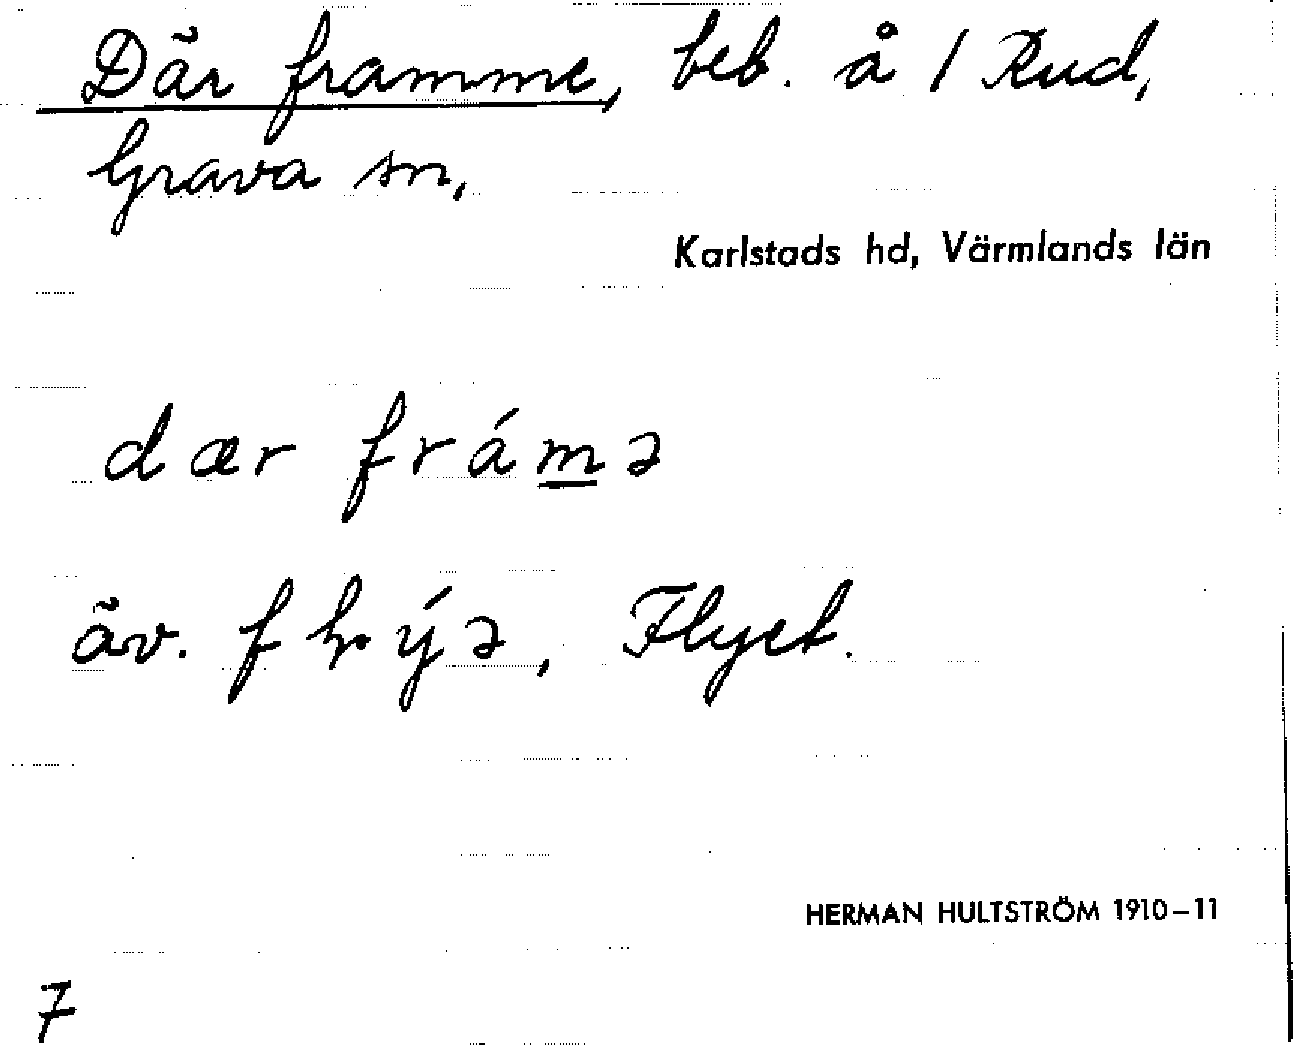 Där framme, beb. å / Rud,
Grava sn,
Karlstads hd, Värmlands län
dær frám̲ə
äv. fḷýə, Flyet.
HERMAN HULTSTRÖM 1910–11
7